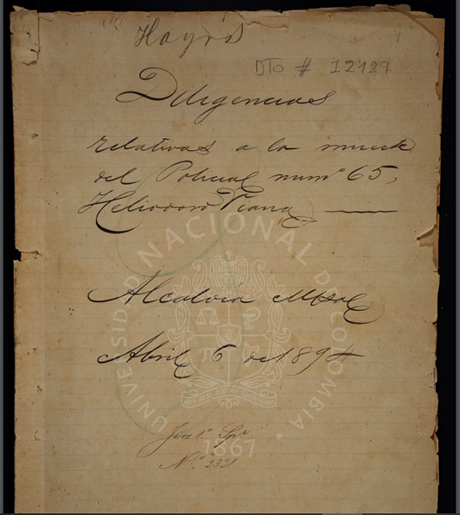 Hoyos
DTO # 12129
Diligencias
relativas a la muerte
del Policial num° 65,
Heliodoro Viana
Alcaldía Mpal
Abril 6 de 1894
Juez 1° Spr
N° 2321
UNIVERSIDAD NACIONAL DE COLOMBIA
1867